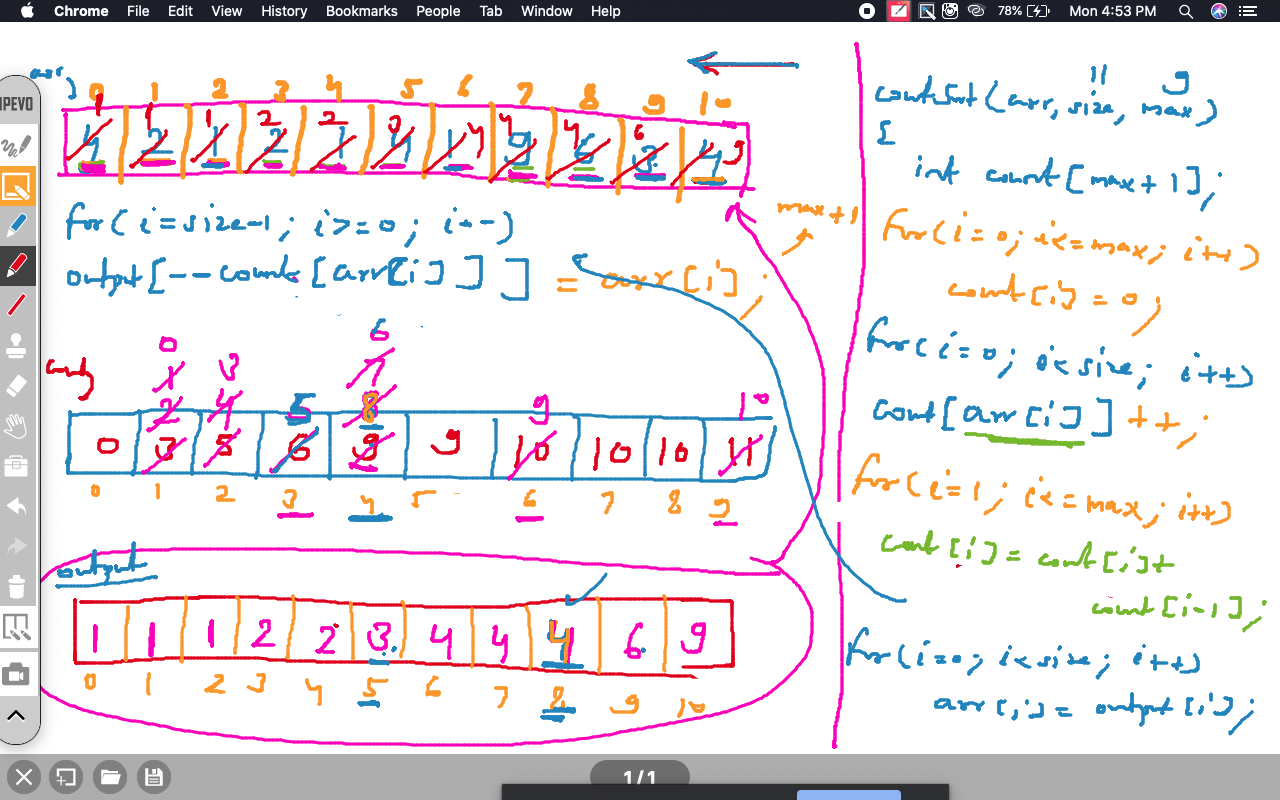 Chrome File Edit View History Bookmarks People Tab Window Help 78% Mon 4:53 PM
IPEVO
arr
0 1 2 3 4 5 6 7 8 9 10
1 1 1 2 2 3 4 4 4 6 9
4 2 1 2 1 4 1 9 6 3 4
for( i=size-1; i>=0; i--)
output[--count[arr[i]]] = arr[i];
max+1
count
0
1 3 6
2 4 7
5 8 9 10
0 3 5 6 9 9 10 10 10 11
0 1 2 3 4 5 6 7 8 9
output
1 1 1 2 2 3 4 4 4 6 9
0 1 2 3 4 5 6 7 8 9 10
11 9
countSort(arr, size, max)
{
int count[max+1];
for(i=0; i<=max; i++)
count[i]=0;
for(i=0; i<size; i++)
cont[arr[i]]++;
for(i=1; i<=max; i++)
cont[i]=cont[i]+
count[i-1];
for(i=0; i<size; i++)
arr[i]= output[i];
1/1